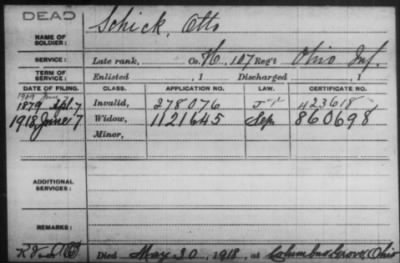 DEAD
Schick, Otto
NAME OF SOLDIER:
SERVICE: Late rank, Co. H, 107 Reg't Ohio Inf.
TERM OF SERVICE: Enlisted , 1 Discharged , 1
DATE OF FILING. CLASS. APPLICATION NO. LAW. CERTIFICATE NO.
1879 7 Invalid, 278076 423618
1918 June 7 Widow, 1121645 Sep 860698
Minor,
ADDITIONAL SERVICES:
REMARKS:
Died May 30, 1918, at Columbus Grove, Ohio